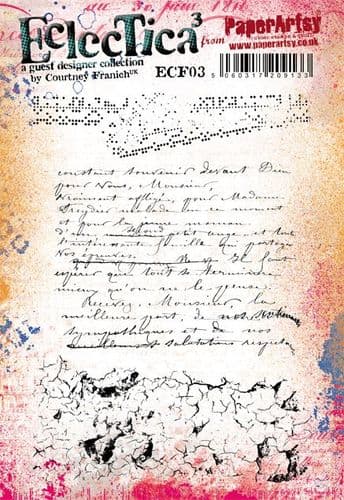 EClecTica³
from PaperArtsy
www.paperartsy.co.uk
a guest designer collection
by Courtney Franich UK
ECF03
5 060317 209133
constant souvenir devant Dieu
pour vous, Monsieur,
vraiment affligée, pour Madame
malade en ce moment
et pour la jeune maman
petit ange, et la
famille qui partage
Nos épreuves. Il faut
espérer que tout se terminera
mieux qu'on ne le pense.
Recevez, Monsieur, la
meilleure part, de nos
sympathies et de nos
salutations